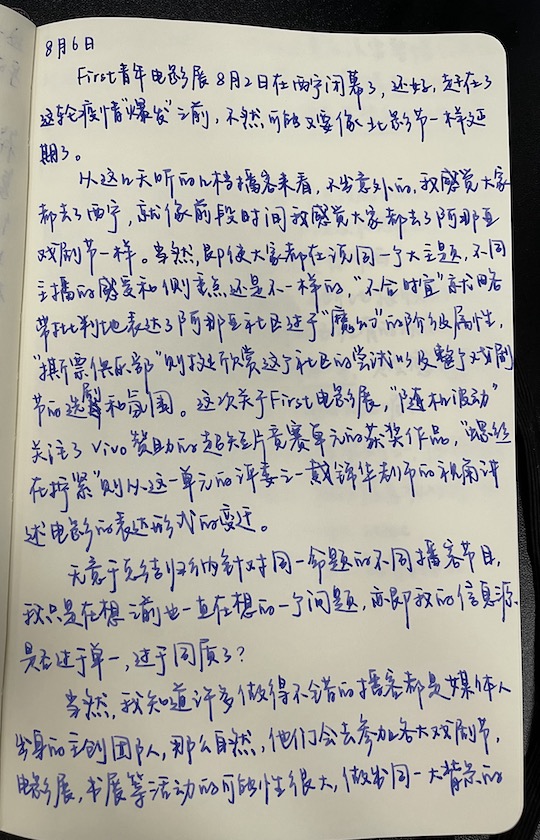 8月6日
First青年电影展8月2日在西宁闭幕了，还好，赶在了
这轮疫情“爆发”之前，不然可能又要像北影节一样延
期了。
从这几天听的几档播客来看，不出意外的，我感觉大家
都去了西宁，就像前段时间我感觉大家都去了阿那亚
戏剧节一样。当然，即使大家都在谈同一个大主题，不同
主播的感受和侧重点还是不一样的，“不合时宜”就略
带批判地表达了阿那亚社区过于“魔幻”的阶级属性，
“撕票俱乐部”则较欣赏这个社区的尝试以及整个戏剧
节的选剧和氛围。这次关于First电影展，“随机波动”
关注了vivo赞助的超短片竞赛单元的获奖作品，“螺丝
在拧紧”则从这一单元的评委之一戴锦华老师的视角讲
述电影的表达形式的变迁。
无意于总结归纳针对同一命题的不同播客节目，
我只是在想之前也一直在想的一个问题，亦即我的信息源
是否过于单一，过于同质了？
当然，我知道许多做得不错的播客都是媒体人
出身的主创团队，那么自然，他们会去参加各大戏剧节，
电影展，书展等活动的可能性很大，做出同一大背景的